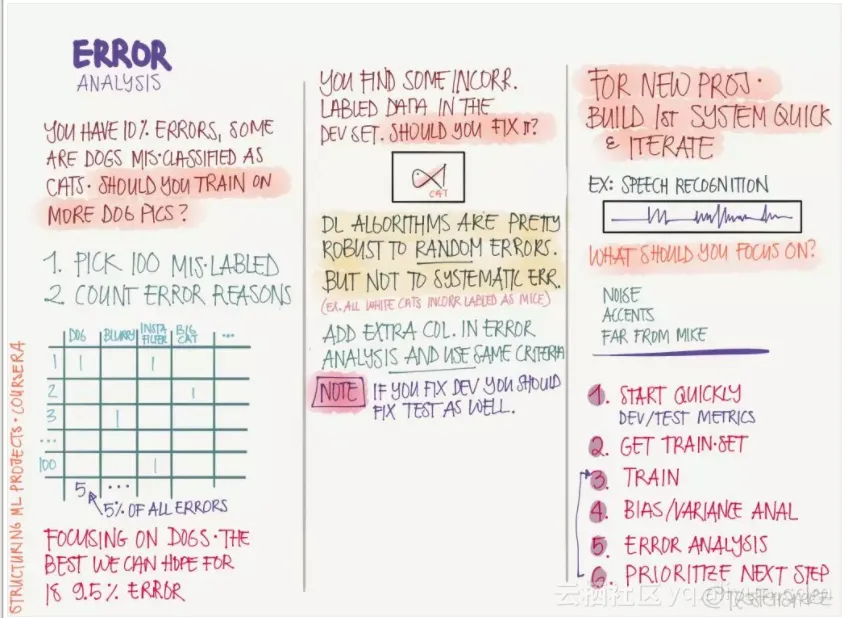 ERROR
ANALYSIS
YOU HAVE 10% ERRORS, SOME
ARE DOGS MIS·CLASSIFIED AS
CATS· SHOULD YOU TRAIN ON
MORE DOG PICS?
1. PICK 100 MIS·LABLED
2. COUNT ERROR REASONS
DOG BLURRY INSTA FILTER BIG CAT ...
1
2
3
...
100
5 ...
5% OF ALL ERRORS
FOCUSING ON DOGS·THE
BEST WE CAN HOPE FOR
IS 9.5% ERROR
STRUCTURING ML PROJECTS·COURSERA
YOU FIND SOME INCORR.
LABLED DATA IN THE
DEV SET. SHOULD YOU FIX IT?
CAT
DL ALGORITHMS ARE PRETTY
ROBUST TO RANDOM ERRORS.
BUT NOT TO SYSTEMATIC ERR.
(EX. ALL WHITE CATS INCORR LABLED AS MICE)
ADD EXTRA COL. IN ERROR
ANALYSIS AND USE SAME CRITERIA
NOTE IF YOU FIX DEV YOU SHOULD
FIX TEST AS WELL.
FOR NEW PROJ·
BUILD 1st SYSTEM QUICK
& ITERATE
EX: SPEECH RECOGNITION
WHAT SHOULD YOU FOCUS ON?
NOISE
ACCENTS
FAR FROM MIKE
1. START QUICKLY
DEV/TEST METRICS
2. GET TRAIN·SET
3. TRAIN
4. BIAS/VARIANCE ANAL
5. ERROR ANALYSIS
6. PRIORITIZE NEXT STEP
云栖社区